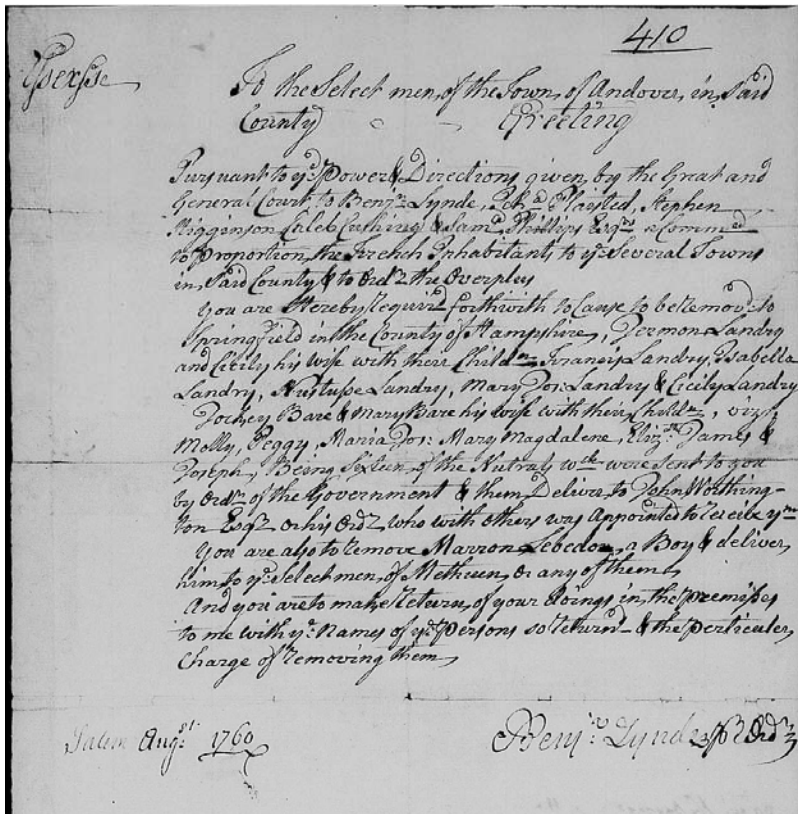 410
Essex ss
To the Select men, of the Town, of Andover, in, said
County Greeting
Pursuant to ye Power & Directions given, by the Great and
General Court, to Benjn Lynde, Ichd Plaisted, Stephen
Higginson Caleb Cushing & Saml Phillips Esqrs a Commtee
to Proportion, the French Inhabitants to ye Several Towns
in, said County & to Ordr the Overplus
You are Hereby Requir'd forthwith to Cause to be Remov'd to
Springfield in the County of Hampshire, Jermon Landry
and Cicily his wife with their Childn Francis Landry, Isabella
Landry, Landry, Mary Jos: Landry & Cicily Landry
Jockey Bare & Mary Bare his wife with their Childn, vizt
Molly, Peggy, Maria Jos: Mary Magdalene, Elizth James &
Joseph, Being Sixteen, of the Nutrals wch were sent to you
by Ordr of the Government & them, Deliver, to John Worthing-
ton Esqr or his Ordr who with others was Appointed to receive ym
You are also to remove Marron Lebedore, a Boy & deliver,
him to ye Selectmen, of Methuen, or any of them
And you are to make Return, of your doings in, the premises
to me with ye Names of ye Persons so return'd & the perticuler,
Charge of removing them
Salem Augst 1760 Benjn Lynde Ordr